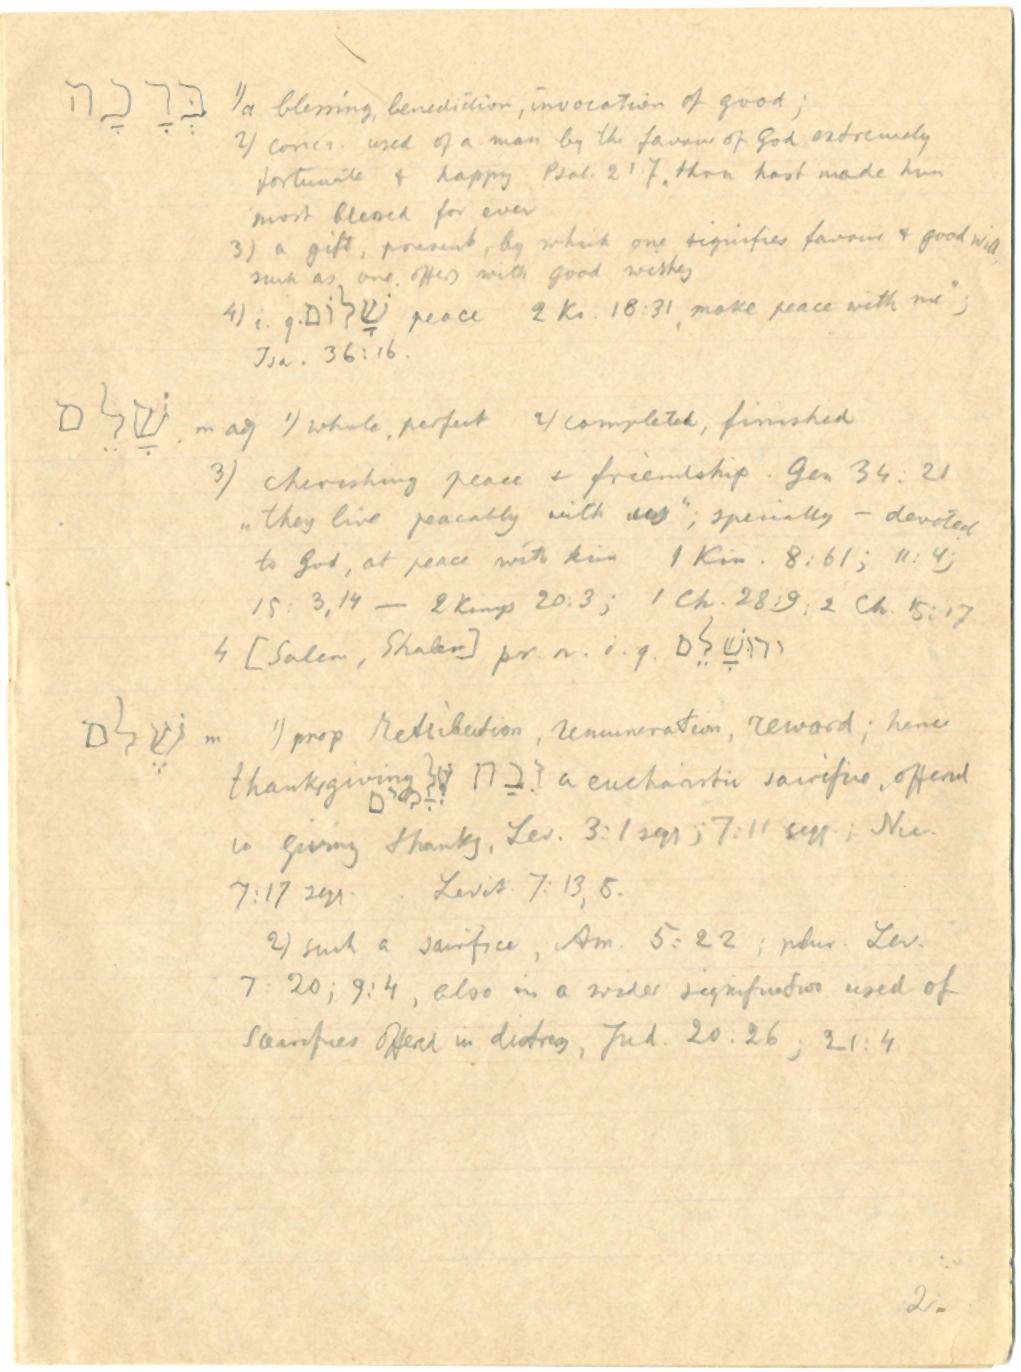 בְּרָכָה 1) a blessing, benediction, invocation of good;
2) concr. used of a man by the favour of God extremely
fortunate & happy Psal. 21:7 „thou hast made him
most blessed for ever
3) a gift, present, by which one signifies favour & good will,
such as one offers with good wishes
4) i. q. שָׁלוֹם peace 2 Ki. 18:31 „make peace with me";
Isa. 36:16.
שָׁלֵם m adj 1) whole, perfect 2) completed, finished
3) cherishing peace & friendship. Gen 34:21
„they live peacably with us"; specially – devoted
to God, at peace with him 1 Kin. 8:61; 11:4;
15:3,14 — 2 Kings 20:3; 1 Ch. 28:9; 2 Ch. 15:17
4 [Salem, Shalem] pr. n. i. q. ירושָׁלֵם
שֶׁלֶם m 1) prop Retribution, remuneration, reward; hence
thanksgiving זֶבַח a eucharistic sacrifice, offered
in giving thanks, Lev. 3:1 sqq; 7:11 sqq; Nu.
7:17 sqq. Levit. 7:13, 5.
2) such a sacrifice, Am. 5:22; plur. Lev.
7:20; 9:4, also in a wider signification used of
sacrifices offered in distress, Jud. 20:26; 21:4
2.